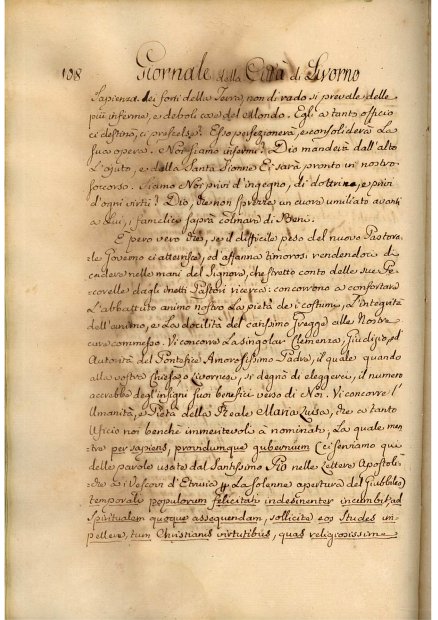 108 Giornale della Città di Livorno
Sapienza dei forti della Terra, non di rado si prevale delle
più inferme, e deboli cose del Mondo. Egli a tanto officio
ci destinò, ci prescelse? Esso perfezionerà, e consoliderà la
sua opera. Noi siamo infermi? Dio manderà dall'alto
L'ajuto, e dalla Santa Sionne Ei sarà pronto in nostro
soccorso. Siamo Noi privi d'ingegno, di dottrina, e privi
d'ogni virtù? Dio, che non sprezza un cuore umiliato avanti
a Lui, i famelici saprà colmare di Beni.
E però vero che, se il difficile peso del nuovo Pastora-
le Governo ci atterrisce, ed affanna timorosi rendendoci di
cadere nelle mani del Signore, che stretto conto delle sue Pe-
corelle dagli inetti Pastori ricerca: concorrono a confortare
L'abbattuto animo nostro La pietà de' costumi, L'integrità
dell'animo, e La docilità del carissimo Gregge alle Nostre
cure commesso. Vi concorre La singolar Clemenza, Giudizio, ed
Autorità del Pontefice Amorosissimo Padre, il quale quando
alla vostra Chiesa, o Livornesi, si degnò di eleggerci, il numero
accrebbe degl'insigni suoi benefici verso di Noi. Vi concorre l'
Umanità, e Pietà della Reale Maria Luisa, che a tanto
Uficio noi benchè immeritevoli à nominato, La quale men-
tre per sapiens, providumque gubernium (ci serviamo quì
delle parole usate dal Santissimo Pio nelle Lettere Apostoli-
che ai Vescovi d'Etruria p. La solenne apertura del Giubbileo)
temporali populorum felicitati indesinenter incumbit, ad
Spiritualem quoque assequendam, sollicite eos studet im-
pellere, tum Christianis virtutibus, quas religiosissime